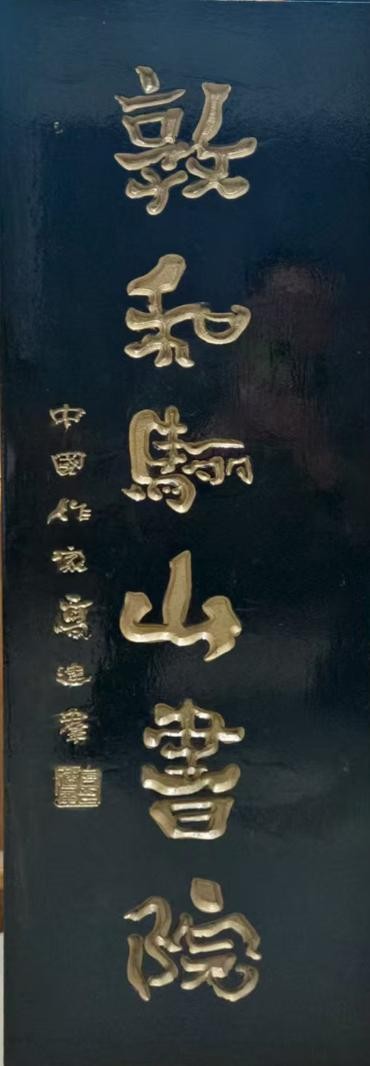 敦和驪山書院
中國作家高建羣